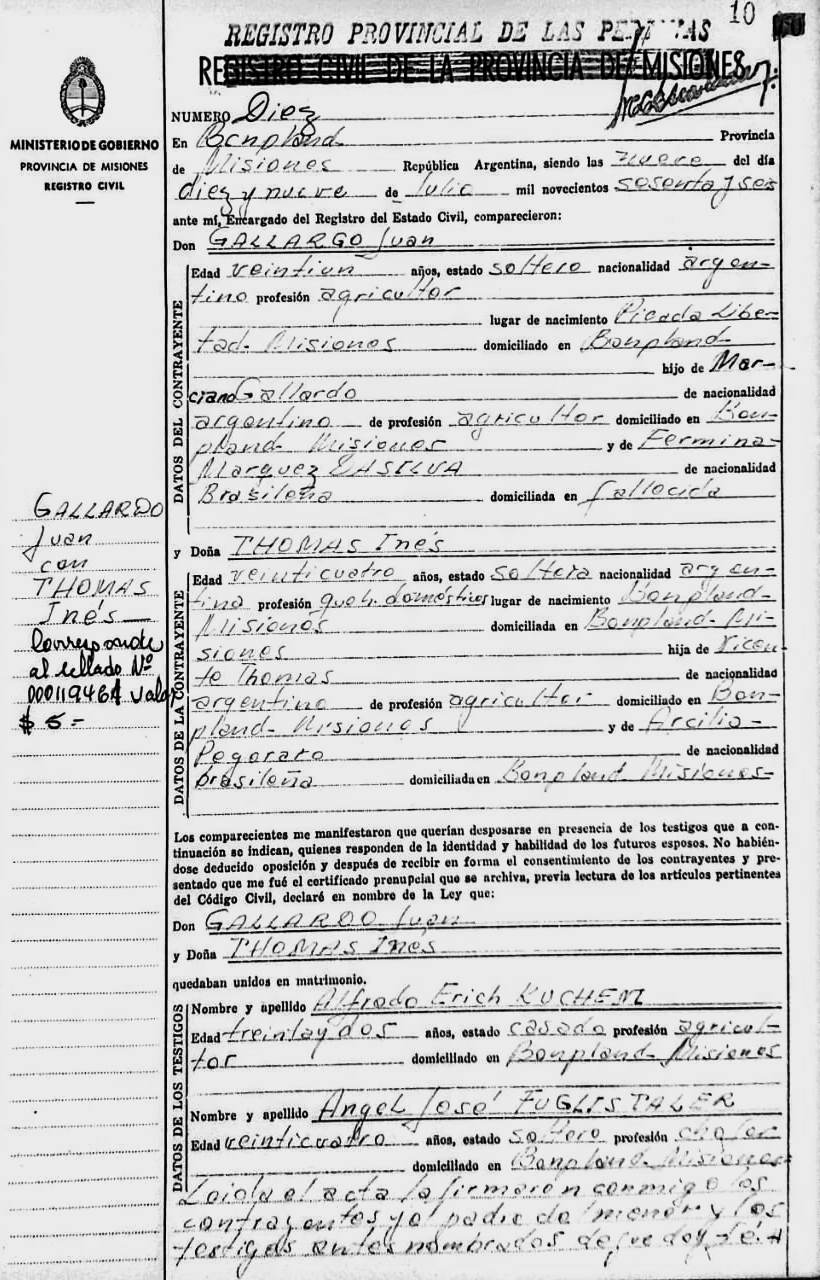 10
REGISTRO PROVINCIAL DE LAS PERSONAS
REGISTRO CIVIL DE LA PROVINCIA DE MISIONES
MINISTERIO DE GOBIERNO
PROVINCIA DE MISIONES
REGISTRO CIVIL
NUMERO Diez
En Bonpland Provincia
de Misiones República Argentina, siendo las nueve del día
diez y nueve de Julio mil novecientos sesenta y seis
ante mí, Encargado del Registro del Estado Civil, comparecieron:
Don GALLARGO Juan
DATOS DEL CONTRAYENTE
Edad veintiun años, estado soltero nacionalidad argen-
tino profesión agricultor
lugar de nacimiento Picada Libe-
tad- Misiones domiciliado en Bonpland-
hijo de Mar-
ciano Gallardo de nacionalidad
argentino de profesión agricultor domiciliado en Bon-
pland- Misiones y de Fermina-
Marquez DASILVA de nacionalidad
Brasileña domiciliada en fallecida
y Doña THOMAS Inés
DATOS DE LA CONTRAYENTE
Edad veinticuatro años, estado soltera nacionalidad argen-
tina profesión queh. domésticos lugar de nacimiento Bonpland-
Misiones domiciliado en Bonpland- Mi-
siones hija de Vicen-
te Thomas de nacionalidad
argentino de profesión agricultor domiciliado en Bon-
pland- Misiones y de Arcilia-
Pegoraro de nacionalidad
brasileña domiciliada en Bonpland Misiones-
GALLARDO
Juan
con
THOMAS
Inés
Corresponde
al sellado Nº
00011946A valor
$ 5=
Los comparecientes me manifestaron que querían desposarse en presencia de los testigos que a con-
tinuación se indican, quienes responden de la identidad y habilidad de los futuros esposos. No habién-
dose deducido oposición y después de recibir en forma el consentimiento de los contrayentes y pre-
sentado que me fué el certificado prenupcial que se archiva, previa lectura de los artículos pertinentes
del Código Civil, declaré en nombre de la Ley que:
Don GALLARDO Juan
y Doña THOMAS Inés
quedaban unidos en matrimonio.
DATOS DE LOS TESTIGOS
Nombre y apellido Alfredo Erich KUCHEM
Edad treinta y dos años, estado casado profesión agricul-
tor domiciliado en Bonpland- Misiones
Nombre y apellido Angel José FUGLISTALER
Edad veinticuatro años, estado soltero profesión chofer
domiciliado en Bonpland- Misiones-
Leida el acta la firmaron conmigo los
contrayentes y el padre del menor y los
testigos antes nombrados de que doy fé.